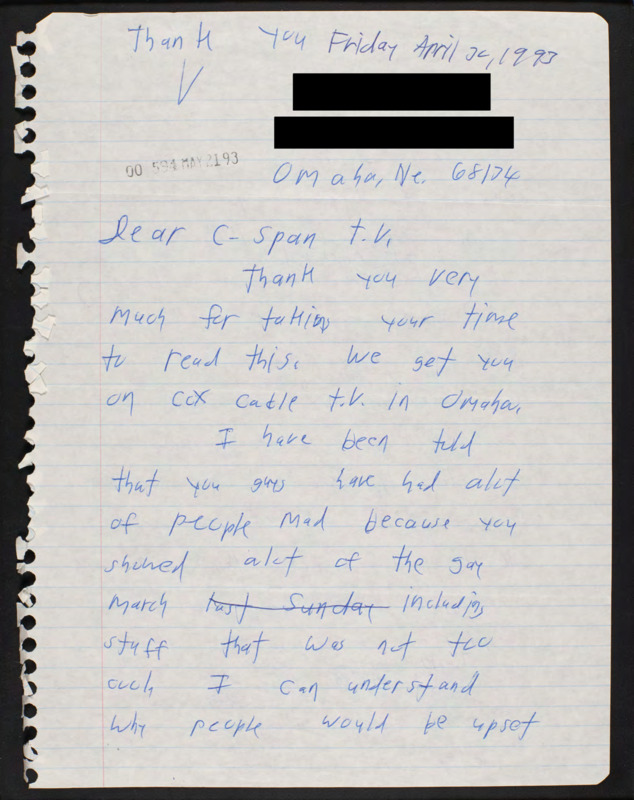 Thank You Friday April 30, 1993
00 594 MAY21 93
Omaha, Ne. 68124
Dear C-Span t.V,
Thank you very
much for taking your time
to read this. We get you
on cox cable t.V. in Omaha.
I have been told
that you guys have had alot
of people mad because you
showed alot of the gay
march last Sunday including
stuff that was not too
I can understand
why people would be upset